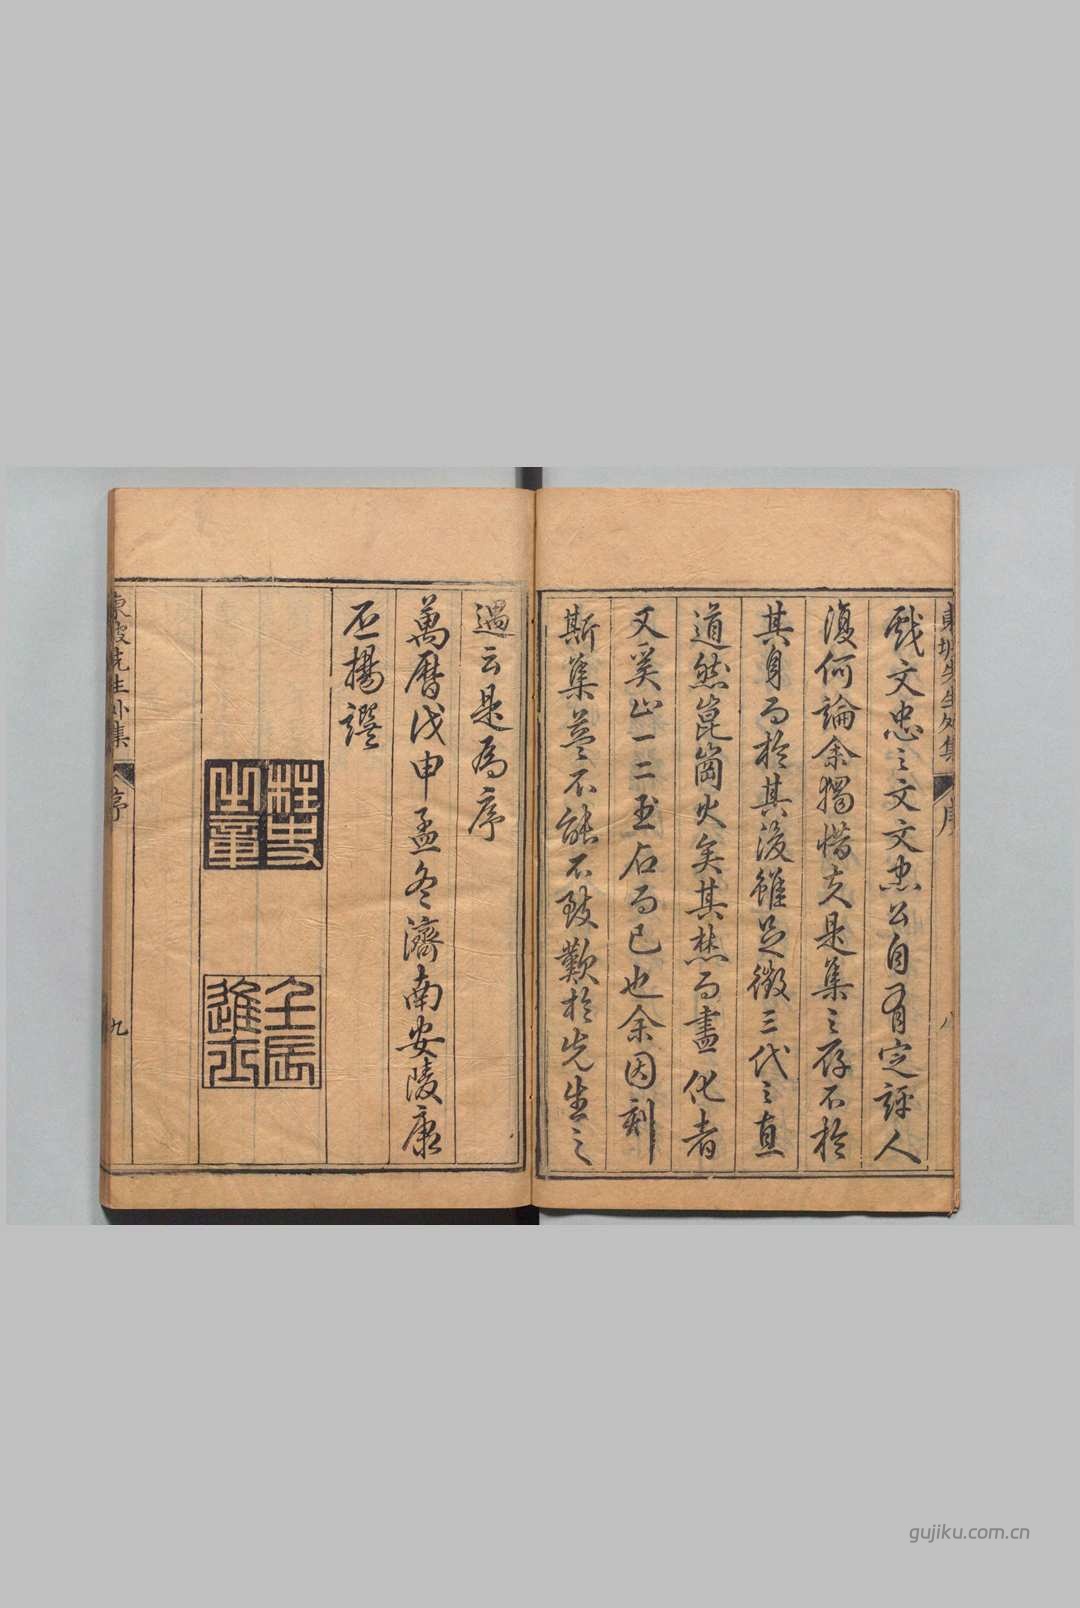 東坡先生外集
序
八
戲文忠之文文忠公自有定評人
復何論余獨惜夫是集之存不於
其身而於其後雖足徵三代之直
道然崑崗火矣其焚而盡化者
又奚止一二玉石而已也余因刻
斯集蓋不能不致歎於先生之
遇云是為序
萬曆戊申孟冬濟南安陵康
丕揚譔
柱史之章
壬辰進士
東坡先生外集
序
九
gujiku.com.cn